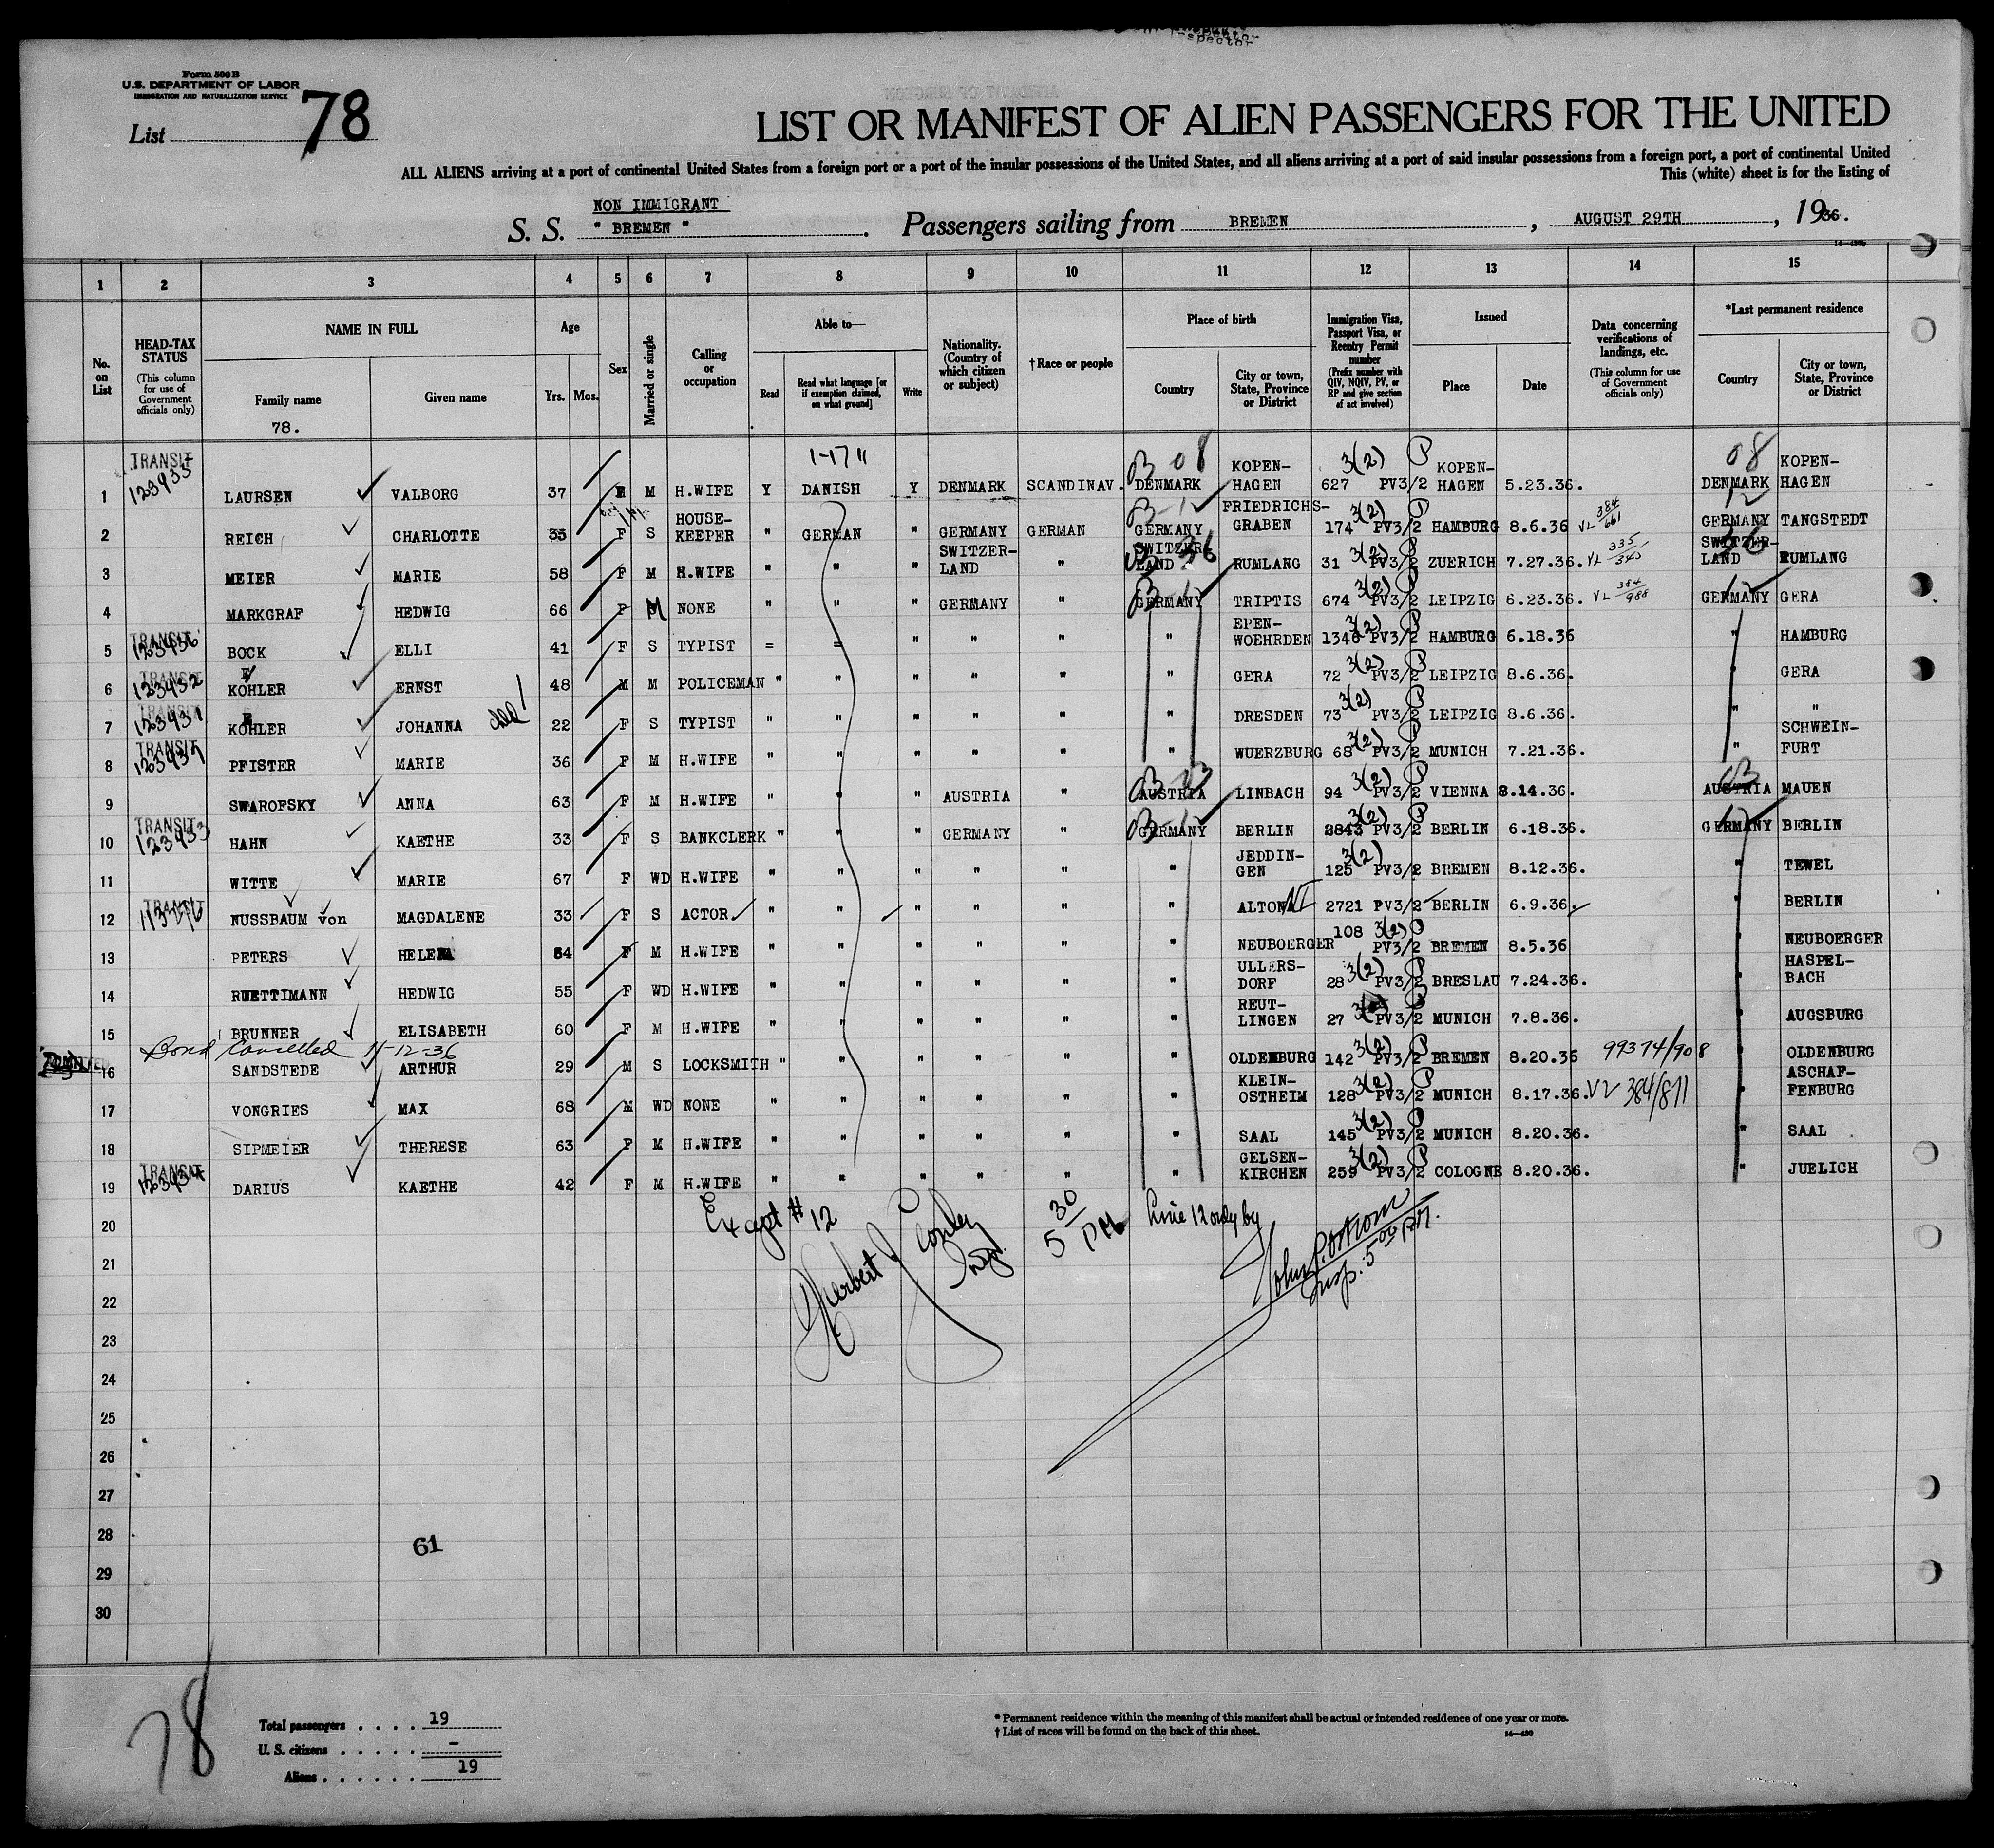 spector
Form 500 B
U.S. DEPARTMENT OF LABOR
IMMIGRATION AND NATURALIZATION SERVICE
List 78
LIST OR MANIFEST OF ALIEN PASSENGERS FOR THE UNITED
ALL ALIENS arriving at a port of continental United States from a foreign port or a port of the insular possessions of the United States, and all aliens arriving at a port of said insular possessions from a foreign port, a port of continental United
This (white) sheet is for the listing of
NON IMMIGRANT
S. S. " BREMEN ". Passengers sailing from BREMEN, AUGUST 29TH, 1936.
1 2 3 4 5 6 7 8 9 10 11 12 13 14 15
No. on List
HEAD-TAX STATUS (This column for use of Government officials only)
NAME IN FULL
Family name
78.
Given name
Age
Yrs. Mos.
Sex
Married or single
Calling or occupation
Able to—
Read
Read what language [or if exemption claimed, on what ground]
Write
Nationality. (Country of which citizen or subject)
†Race or people
Place of birth
Country
City or town, State, Province or District
Immigration Visa, Passport Visa, or Reentry Permit number (Prefix number with QIV, NQIV, PV, or RP and give section of act involved)
Issued
Place
Date
Data concerning verifications of landings, etc. (This column for use of Government officials only)
*Last permanent residence
Country
City or town, State, Province or District
1 TRANSIT 123935 LAURSEN VALBORG 37 M H.WIFE Y DANISH Y DENMARK SCANDINAV. DENMARK 08 KOPEN-HAGEN 627 3(2) PV3/2 KOPEN-HAGEN 5.23.36. DENMARK 08 KOPEN-HAGEN
2 REICH CHARLOTTE 33 F S HOUSE-KEEPER " GERMAN " GERMANY GERMAN GERMANY FRIEDRICHS-GRABEN 174 3(2) PV3/2 HAMBURG 8.6.36 VL 384/661 GERMANY 12 TANGSTEDT
3 MEIER MARIE 58 F M H.WIFE " " " SWITZER-LAND " SWITZER-LAND 36 RUMLANG 31 3(2) PV3/2 ZUERICH 7.27.36. VL 335/343 SWITZER-LAND 36 RUMLANG
4 MARKGRAF HEDWIG 66 F M NONE " " " GERMANY " GERMANY TRIPTIS 674 3(2) PV3/2 LEIPZIG 6.23.36. VL 384/988 GERMANY 12 GERA
5 TRANSIT 123936 BOCK ELLI 41 F S TYPIST = = " " " " EPEN-WOEHRDEN 1346 3(2) PV3/2 HAMBURG 6.18.36 " HAMBURG
6 TRANSIT 123932 KOHLER ERNST 48 M M POLICEMAN " " " " " " GERA 72 3(2) PV3/2 LEIPZIG 8.6.36. " GERA
7 TRANSIT 123931 KOHLER JOHANNA 22 F S TYPIST " " " " " " DRESDEN 73 3(2) PV3/2 LEIPZIG 8.6.36. " "
8 TRANSIT 123937 PFISTER MARIE 36 F M H.WIFE " " " " " " WUERZBURG 68 3(2) PV3/2 MUNICH 7.21.36. " SCHWEIN-FURT
9 SWAROFSKY ANNA 63 F M H.WIFE " " " AUSTRIA " AUSTRIA 03 LINBACH 94 3(2) PV3/2 VIENNA 8.14.36. AUSTRIA 03 MAUEN
10 TRANSIT 123933 HAHN KAETHE 33 F S BANKCLERK " " " GERMANY " GERMANY BERLIN 2843 3(2) PV3/2 BERLIN 6.18.36. GERMANY 12 BERLIN
11 WITTE MARIE 67 F WD H.WIFE " " " " " " JEDDIN-GEN 125 3(2) PV3/2 BREMEN 8.12.36. " TEWEL
12 TRANSIT NUSSBAUM von MAGDALENE 33 F S ACTOR " " " " " " ALTONA 2721 PV3/2 BERLIN 6.9.36. " BERLIN
13 PETERS HELENA 54 F M H.WIFE " " " " " " NEUBOERGER 108 3(2) PV3/2 BREMEN 8.5.36 " NEUBOERGER
14 RUETTIMANN HEDWIG 55 F WD H.WIFE " " " " " " ULLERS-DORF 28 3(2) PV3/2 BRESLAU 7.24.36. " HASPEL-BACH
15 BRUNNER ELISABETH 60 F M H.WIFE " " " " " " REUT-LINGEN 27 PV3/2 MUNICH 7.8.36. " AUGSBURG
Bond Cancelled 11-12-36
16 SANDSTEDE ARTHUR 29 M S LOCKSMITH " " " " " " OLDENBURG 142 3(2) PV3/2 BREMEN 8.20.36 99374/908 " OLDENBURG
17 VONGRIES MAX 68 M WD NONE " " " " " " KLEIN-OSTHEIM 128 3(2) PV3/2 MUNICH 8.17.36. VL 384/811 " ASCHAF-FENBURG
18 SIPMEIER THERESE 63 F M H.WIFE " " " " " " SAAL 145 3(2) PV3/2 MUNICH 8.20.36. " SAAL
19 TRANSIT 123934 DARIUS KAETHE 42 F M H.WIFE " " " " " " GELSEN-KIRCHEN 259 3(2) PV3/2 COLOGNE 8.20.36. " JUELICH
20 Except # 12 Herbert J Conley Insp. 5 30 PM Line 12 only by
21 Insp. 5 00 P.M.
22
23
24
25
26
27
28
61
29
30
78
Total passengers . . . . 19
U. S. citizens . . . . . -
Aliens . . . . . . 19
* Permanent residence within the meaning of this manifest shall be actual or intended residence of one year or more.
† List of races will be found on the back of this sheet.
14—430